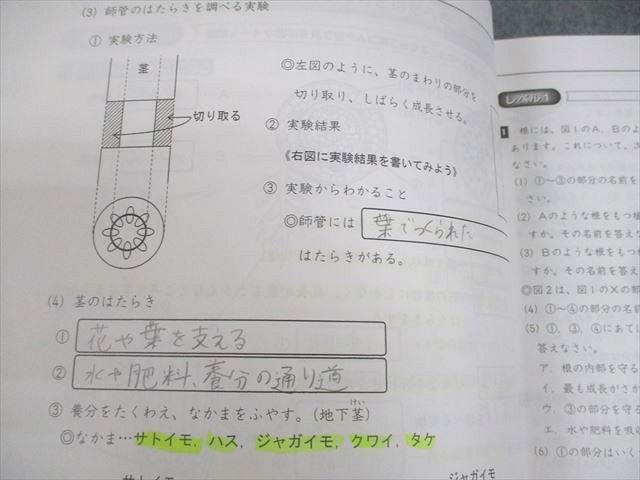 (3) 師管のはたらきを調べる実験
① 実験方法
茎
切り取る
◎左図のように、茎のまわりの部分を
切り取り、しばらく成長させる。
② 実験結果
《右図に実験結果を書いてみよう》
③ 実験からわかること
◎師管には 葉でつくられた
はたらきがある。
(4) 茎のはたらき
① 花や葉を支える
② 水や肥料、養分の通り道
③ 養分をたくわえ、なかまをふやす。(地下茎)
けい
◎なかま…サトイモ, ハス, ジャガイモ, クワイ, タケ
サトイモ
ジャガイモ
レベル1
1 根には、図1のA、Bのよ
あります。これについて、次
なさい。
(1) ①～③の部分の名前を
さい。
(2) Aのような根をもつ植
すか。その名前を答え
(3) Bのような根をもつ植
すか。その名前を答え
◎図2は、図1のXの部
(4) ①～④の部分の名前
(5) ①, ③, ④にあて
答えなさい。
ア. 根の内部を守る
イ. 最も成長がさか
ウ. ③の部分を守る
エ. 水や肥料を吸収
(6) ①の部分はいく